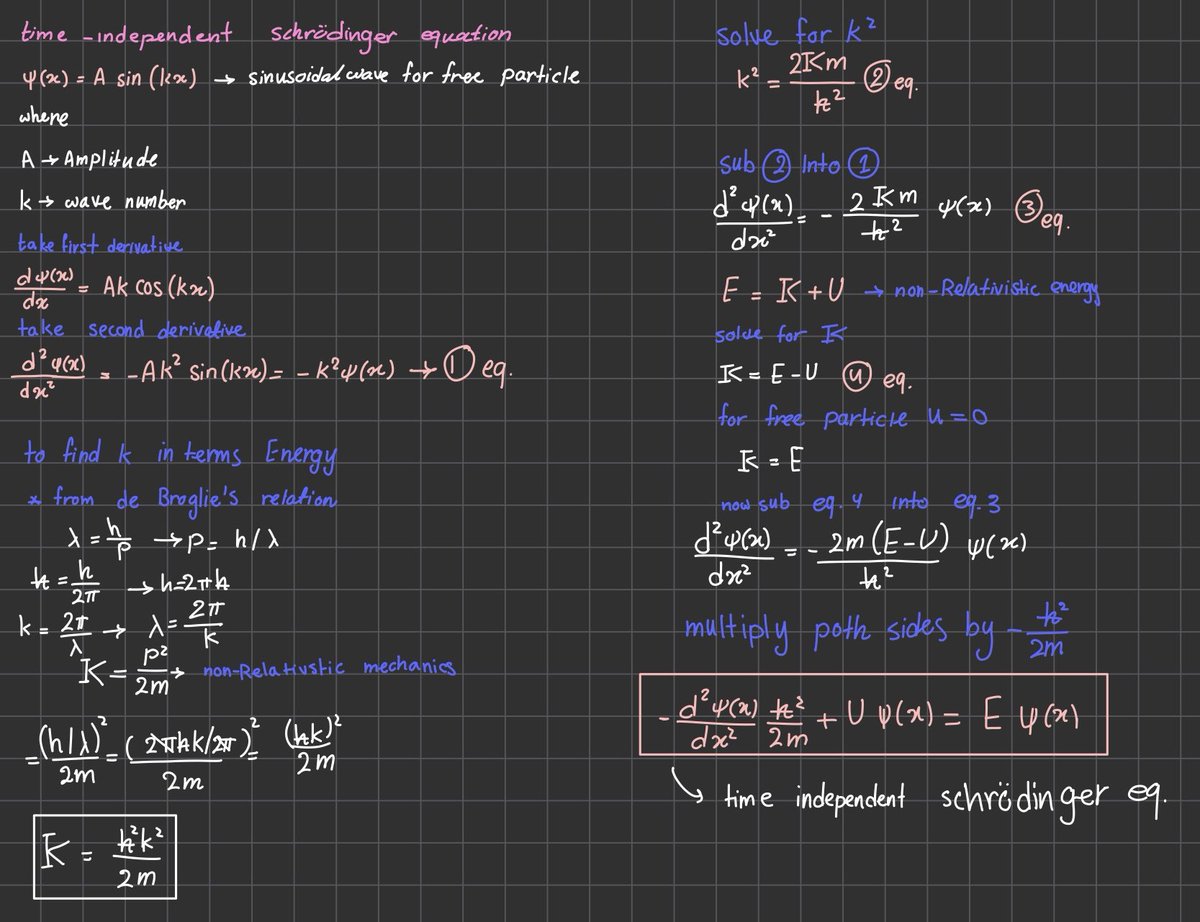 time -independent schrödinger equation
ψ(x) = A sin (kx) → sinusoidal wave for free particle
where
A → Amplitude
k → wave number
take first derivative
dψ(x)/dx = Ak cos(kx)
take second derivative
d²ψ(x)/dx² = -Ak² sin(kx) = -k²ψ(x) → ① eq.
to find k in terms Energy
* from de Broglie's relation
λ = h/p → p = h/λ
ħ = h/2π → h=2πħ
k = 2π/λ → λ = 2π/k
K = p²/2m → non-Relativstic mechanics
= (h/λ)²/2m = (2πħk/2π)²/2m = (ħk)²/2m
K = ħ²k²/2m
solve for k²
k² = 2Km/ħ² ② eq.
sub ② Into ①
d²ψ(x)/dx² = - 2Km/ħ² ψ(x) ③ eq.
E = K + U → non-Relativistic energy
solve for K
K = E - U ④ eq.
for free particle U = 0
K = E
now sub eq. 4 into eq. 3
d²ψ(x)/dx² = - 2m(E-U)/ħ² ψ(x)
multiply poth sides by - ħ²/2m
- d²ψ(x)/dx² ħ²/2m + U ψ(x) = E ψ(x)
↳ time independent schrödinger eq.